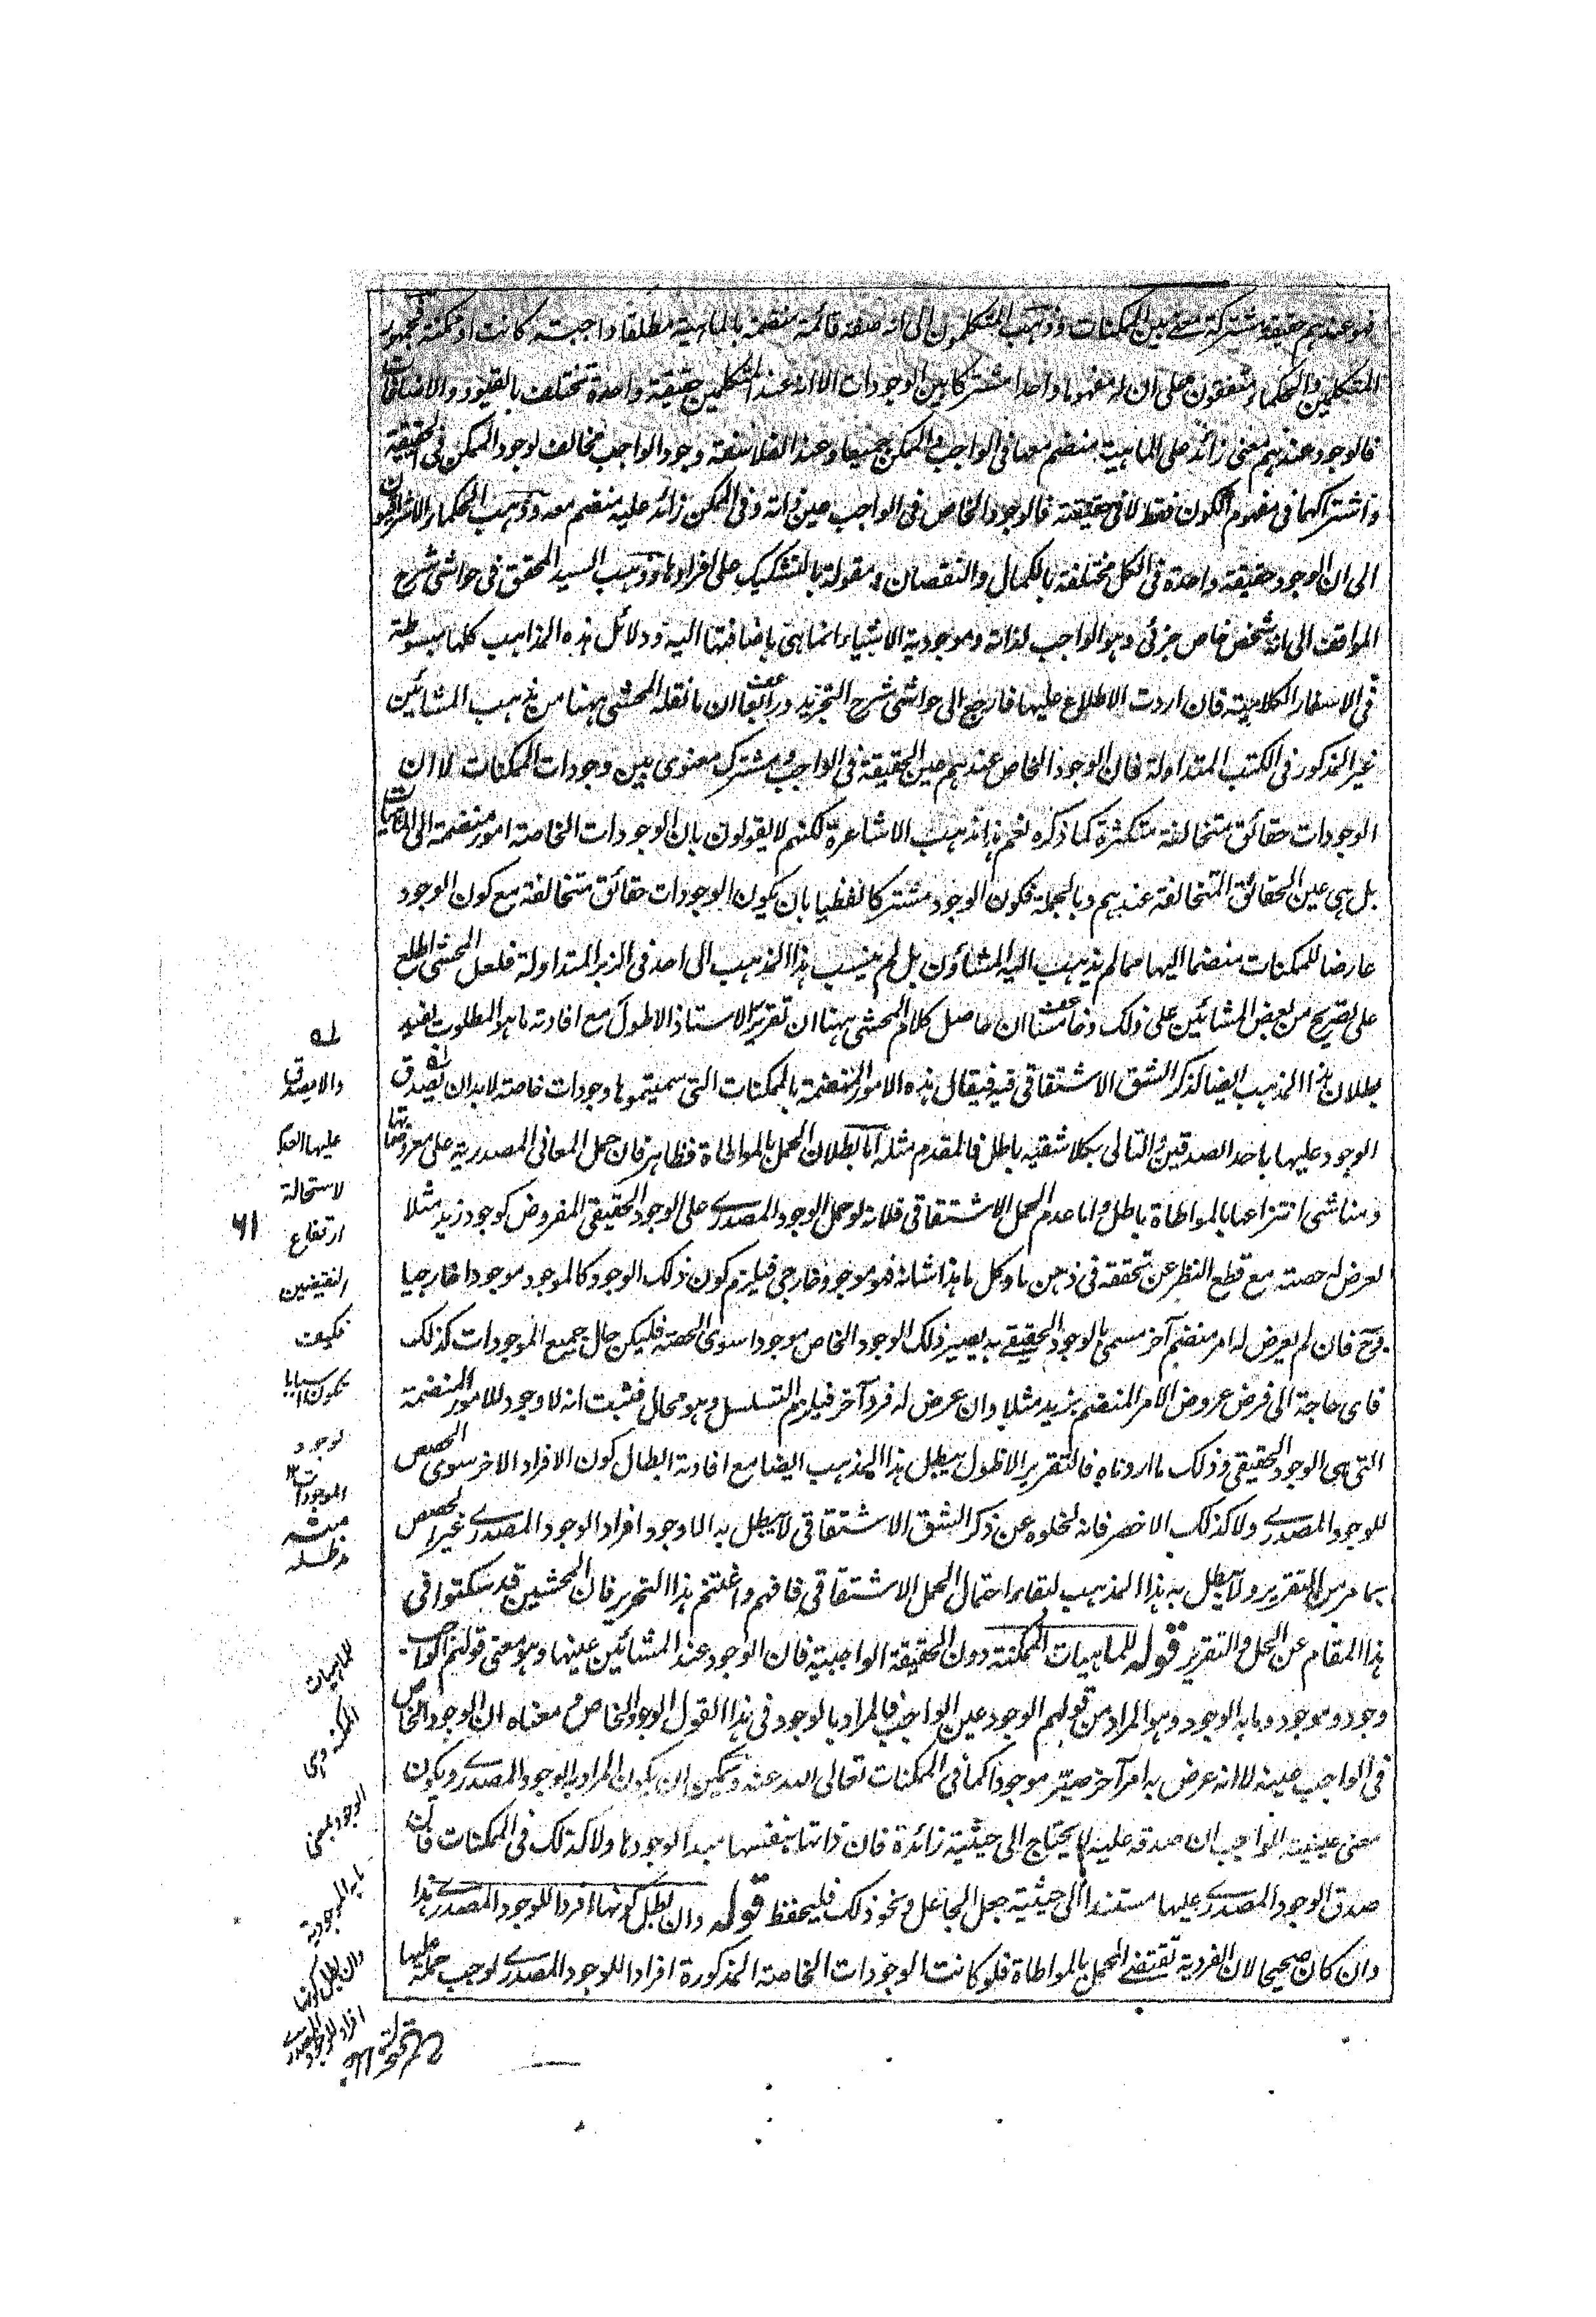 فهو عندهم حقيقة مشتركة معنى بين الممكنات وذهب المتكلمون الى انه صفة قائمة منضمة بالماهية مطلقا واجبة كانت او ممكنة فجمهور
المتكلمين والحكماء متفقون على ان له مفهوما واحدا مشتركا بين الوجودات الا انه عند المتكلمين حقيقة واحدة تختلف بالقيود والاضافات
فالوجود عندهم معنى زائد على الماهية منضم معها فى الواجب والممكن جميعا وعند الفلاسفة وجود الواجب مخالف لوجود الممكن فى الحقيقة
واشتراكهما فى مفهوم الكون فقط لا فى حقيقته فالوجود الخاص فى الواجب عين ذاته وفى الممكن زائد عليه منضم معه وذهب الحكماء الاشراقيون
الى ان الوجود حقيقة واحدة فى الكل مختلفة بالكمال والنقصان ومقولة بالتشكيك على افرادها وذهب السيد المحقق فى حواشى شرح
المواقف الى انه شخص خاص جزئى وهو الواجب لذاته وموجودية الاشياء انما هى باضافتها اليه ودلائل هذه المذاهب كلها مبسوطة
فى الاسفار الكلامية فان اردت الاطلاع عليها فارجع الى حواشى شرح التجريد ورابعا ان ما نقله المحشى ههنا من مذهب المشائين
غير المذكور فى الكتب المتداولة فان الوجود الخاص عندهم عين الحقيقة فى الواجب ومشترك معنوى بين وجودات الممكنات لا ان
الوجودات حقائق متخالفة متكثرة كما ذكره نعم هذا مذهب الاشاعرة لكنهم لا يقولون بان الوجودات الخاصة امور منضمة الى الماهيات
بل هى عين الحقائق المتخالفة عندهم وبالجملة فكون الوجود مشتركا لفظيا بان يكون الوجودات حقائق متخالفة مع كون الوجود
عارضا للممكنات منضما اليها مما لم يذهب اليه المشاؤن بل لم ينسب هذا المذهب الى احد فى الزبر المتداولة فلعل المحشى اطلع
على تصريح من بعض المشائين على ذلك وخامسا ان حاصل كلام المحشى ههنا ان تقرير الاستاذ الاطول مع افادته ما هو المطلوب يفيد
بطلان هذا المذهب ايضا لذكر الشق الاشتقاقى فيه فيقال هذه الامور المنضمة بالممكنات التى سميتموها وجودات خاصة لابد ان يصدق
الوجود عليها باحد الصدقين والتالى بكلا شقيه باطل فالمقدم مثله اما بطلان الحمل بالمواطاة فظاهر فان حمل المعانى المصدرية على معروضاتها
ومناشى انتزاعها بالمواطاة باطل واما عدم الحمل الاشتقاقى فلانه لو حمل الوجود المصدرى على الوجود الحقيقى المفروض كوجود زيد مثلا
لعرض له حصته مع قطع النظر عن تحققه فى ذهن ما وكل ما هذا شانه فهو موجود خارجى فيلزم كون ذلك الوجود كالموجود موجودا خارجيا
فح فان لم يعرض له امر منضم آخر مسمى بالوجود الحقيقى به يصير ذلك الوجود الخاص موجودا سوى الحصة فليكن حال جميع الموجودات كذلك
فاى حاجة الى فرض عروض الامر المنضم بزيد مثلا وان عرض له فرد آخر فيلزم التسلسل وهو محال فثبت انه لا وجود للامور المنضمة
التى هى الوجود الحقيقى وذلك ما اردناه فالتقرير الاطول يبطل هذا المذهب ايضا مع افادته ابطال كون الافراد الاخر سوى الحصص
للوجود المصدرى ولا كذلك الاخصر فانه لخلوه عن ذكر الشق الاشتقاقى لا يبطل به الا وجود افراد الوجود المصدرى غير الحصص
بما مر من التقرير ولا يبطل به هذا المذهب لبقاء احتمال الحمل الاشتقاقى فافهم واغتنم هذا التحرير فان المحشين قد سكتوا فى
هذا المقام عن الحل والتقرير قوله للماهيات الممكنة دون الحقيقة الواجبية فان الوجود عند المشائين عينها وهو معنى قولهم الواجب
وجود وموجود وما به الوجود وهو المراد من قولهم الوجود عين الواجب فالمراد بالوجود فى هذا القول الوجود الخاص ومعناه ان الوجود الخاص
فى الواجب عينه لا انه عرض به امر آخر صيره موجودا كما فى الممكنات تعالى الله عنه ويمكن ان يكون المراد به الوجود المصدرى ويكون
معنى عينيته للواجب ان صدقه عليه لا يحتاج الى حيثية زائدة فان ذاتها بنفسها مبدا لوجودها ولا كذلك فى الممكنات فان
صدق الوجود المصدرى عليها مستند الى حيثية جعل الجاعل ونحو ذلك فليحفظ قوله وان بطل كونها افردا للوجود المصدرى هذا
وان كان صحيحا لان الفردية تقتضى الحمل بالمواطاة فلو كانت الوجودات الخاصة المذكورة افرادا للوجود المصدرى لوجب حمله عليها
له
والا يصدق
عليها العدم
لاستحالة
ارتفاع
النقيضين
فكيف
يكون اسبابا
لوجود
الموجودات ١٢
منه
مد ظله
٦١
للماهيات
الممكنة وهى
الوجود بمعنى
ما به الموجودية
وان بطل كونها
افراد للوجود المصدرى